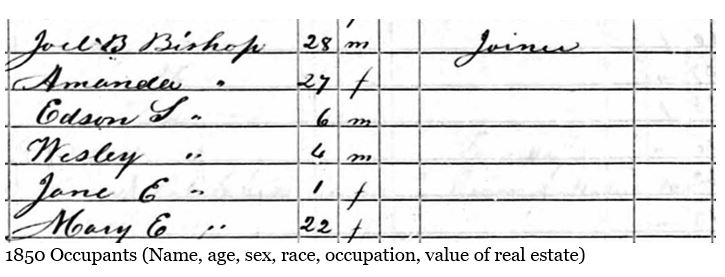 Joel B Bishop 28 m Joiner
Amanda " 27 f
Edson S " 6 m
Wesley " 4 m
Jane E " 1 f
Mary E " 22 f
1850 Occupants (Name, age, sex, race, occupation, value of real estate)